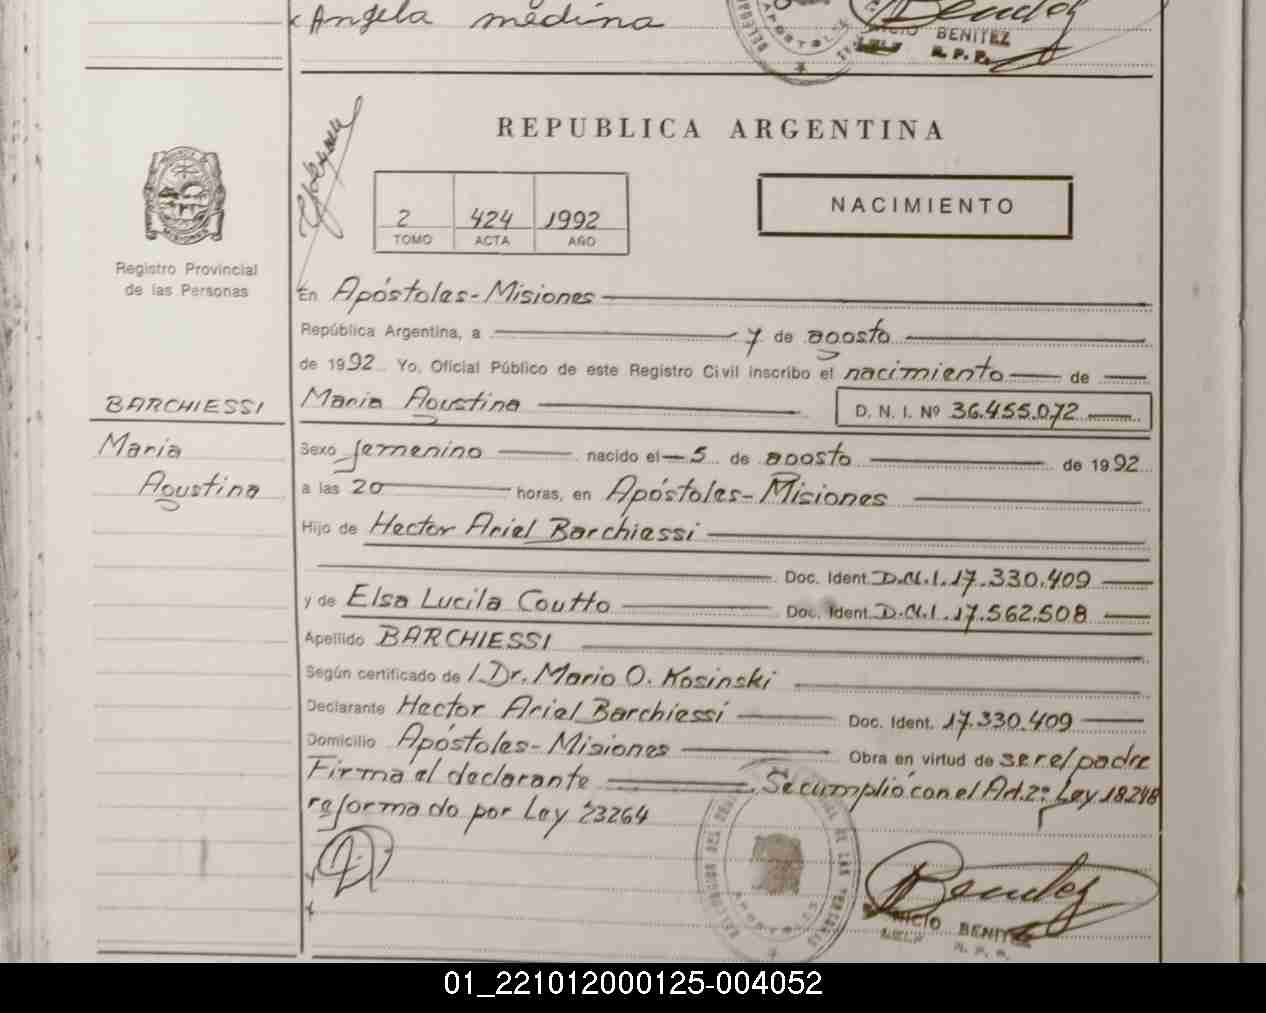 Angela medina
BENITEZ
R. P. P.
REPUBLICA ARGENTINA
2 424 1992
TOMO ACTA AÑO
NACIMIENTO
Registro Provincial
de las Personas
En Apóstoles-Misiones
República Argentina, a 7 de agosto
de 1992 Yo, Oficial Público de este Registro Civil inscribo el nacimiento de
BARCHIESSI
Maria Agustina D. N. I. Nº 36.455.072
Maria
Agustina
Sexo femenino nacido el 5 de agosto de 1992
a las 20 horas, en Apóstoles-Misiones
Hijo de Hector Ariel Barchiessi
Doc. Ident. D.N.I. 17.330.409
y de Elsa Lucila Coutto Doc. Ident. D.N.I. 17.562.508
Apellido BARCHIESSI
Según certificado de l.Dr. Mario O. Kosinski
Declarante Hector Ariel Barchiessi Doc. Ident. 17.330.409
Domicilio Apóstoles-Misiones Obra en virtud de ser el padre
Firma el declarante Se cumplió con el Art. 2º Ley 18.248
reformado por Ley 23264
BENITEZ
01_221012000125-004052